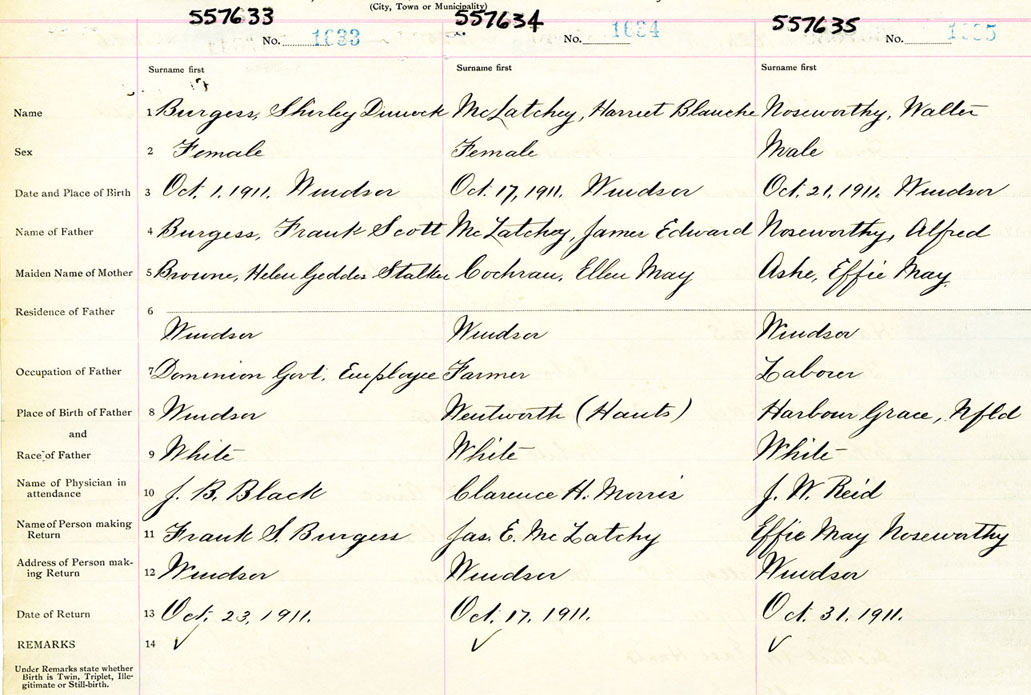 (City, Town or Municipality)
557633 557634 557635
No. 1633 No. 1634 No. 1635
Surname first Surname first Surname first
Name 1 Burgess, Shirley Dimock McLatchey, Harriet Blanche Noseworthy, Walter
Sex 2 Female Female Male
Date and Place of Birth 3 Oct. 1, 1911. Windsor Oct. 17, 1911. Windsor Oct. 21, 1911. Windsor
Name of Father 4 Burgess, Frank Scott McLatchey, James Edward Noseworthy, Alfred
Maiden Name of Mother 5 Browne, Helen Geddes Stalker Cochran, Ellen May Ashe, Effie May
Residence of Father 6
Windsor Windsor Windsor
Occupation of Father 7 Dominion Govt. Employee Farmer Laborer
Place of Birth of Father 8 Windsor Wentworth (Hants) Harbour Grace, Nfld
and
Race of Father 9 White White White
Name of Physician in
attendance 10 J. B. Black Clarence H. Morris J. W. Reid
Name of Person making
Return 11 Frank S. Burgess Jas. E. McLatchy Effie May Noseworthy
Address of Person mak-
ing Return 12 Windsor Windsor Windsor
Date of Return 13 Oct. 23, 1911. Oct. 17, 1911. Oct. 31, 1911.
REMARKS 14 ✓ ✓ ✓
Under Remarks state whether
Birth is Twin, Triplet, Ille-
gitimate or Still-birth.